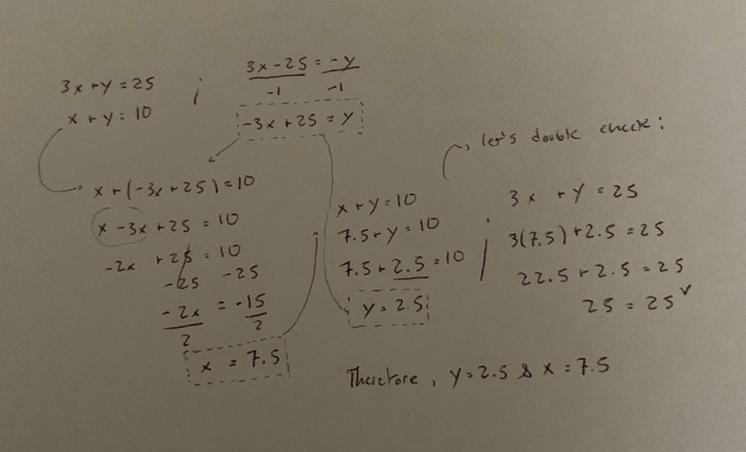 3x + y = 25
x + y = 10
;
3x - 25 = -y
-1 -1
-3x + 25 = y
x + (-3x + 25) = 10
x - 3x + 25 = 10
-2x + 25 = 10
-25 -25
-2x = -15
2 2
x = 7.5
x + y = 10
7.5 + y = 10
7.5 + 2.5 = 10
y = 2.5
;
let's double check:
3x + y = 25
3(7.5) + 2.5 = 25
22.5 + 2.5 = 25
25 = 25 ✓
Therefore, y = 2.5 & x = 7.5